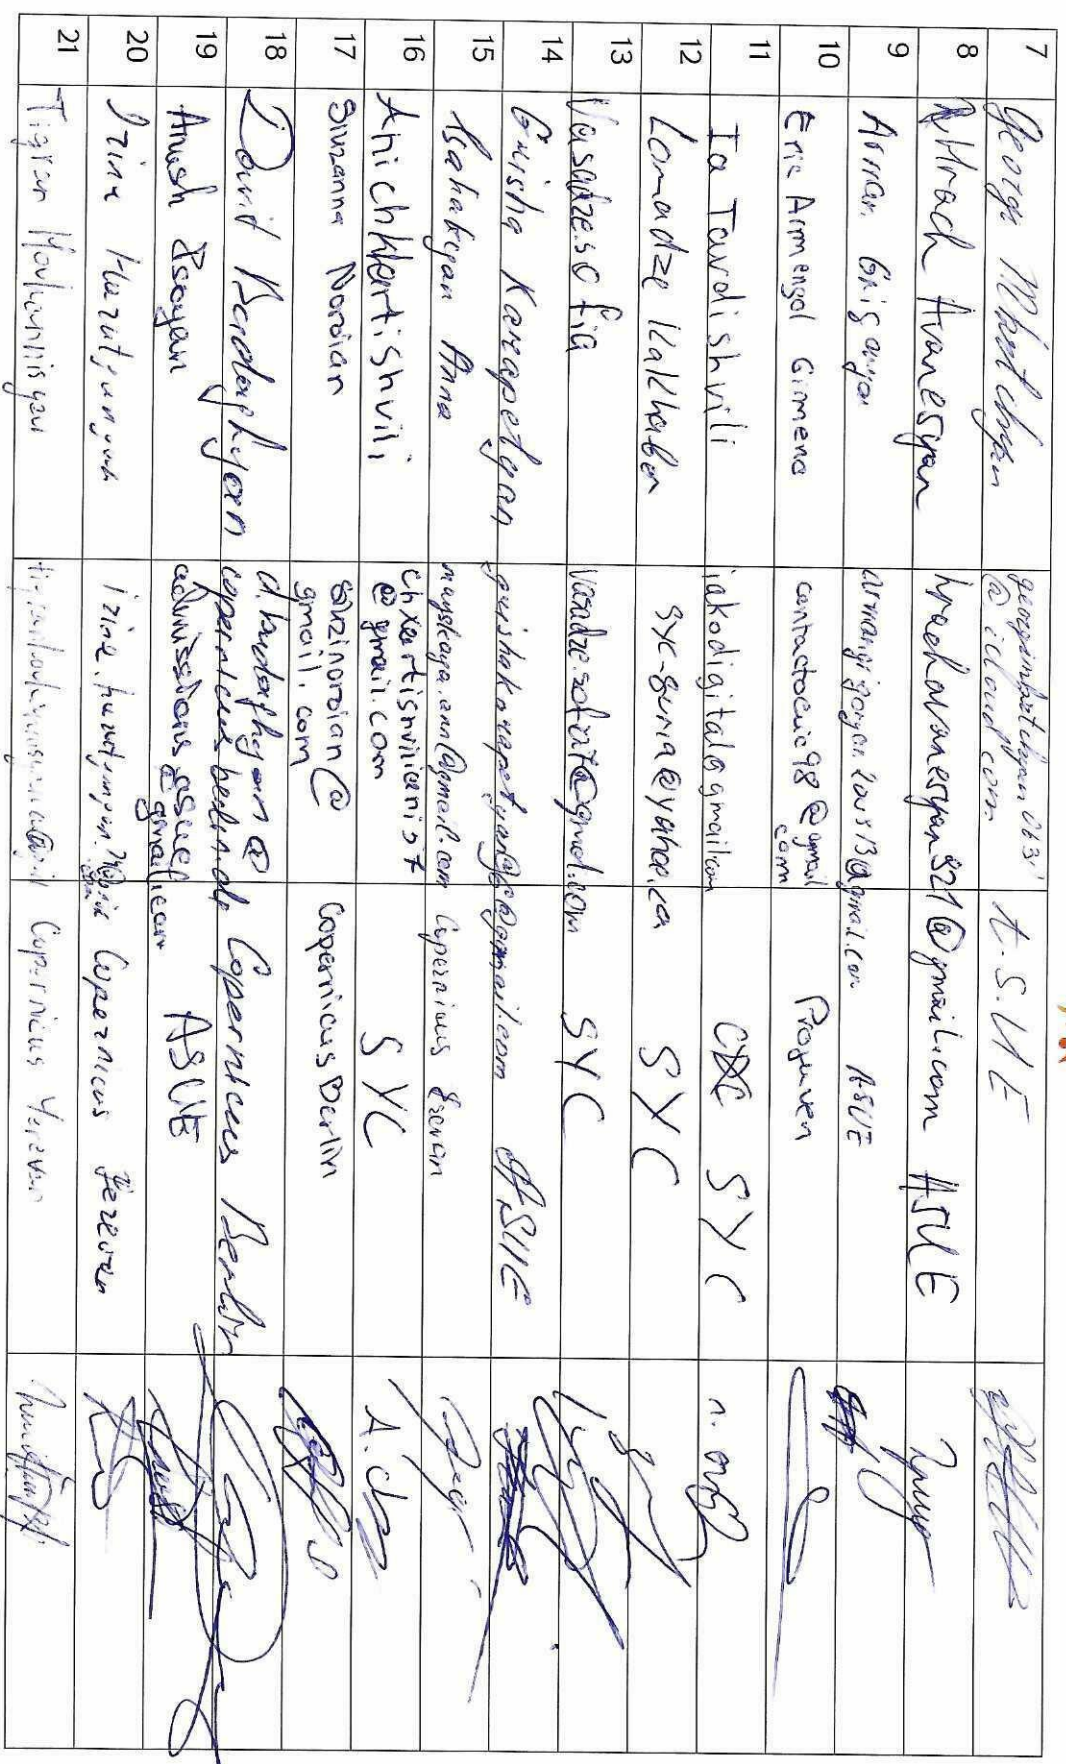 7 George Mkrtchyan georgimkrtchyan0631
@icloud.com A.S.U.E
8 Hrach Avanesyan hrachavanesyan921@gmail.com ASUE
9 Arman Grigoryan ASUE
10 Eric Armengol Gimeno contactoeric98@gmail
com Projuven
11 Ia Tavdishvili iakodigital@gmail.com SYC
12 Lomadze Kakhaber syc-guria@yahoo.ca SYC
13 Vasadze sofia vasadzesofia@gmail.com SYC
14 Gurisha Karapetyan ASUE
15 Isahakyan Anna mayskaya.ann@gmail.com Copernicus Erevan
16 Ani chkhartishvili chxartishviliani57
@gmail.com SYC
17 Siuzanna Noroian siuzinoroian@
gmail.com Copernicus Berlin
18 David Burdaghyan d.burdaghyan@
copernicusberlin.de Copernicus Berlin
19 Anush admissions.asue
@gmail.com ASUE
20 Irina Harutyunyan Copernicus Yerevan
21 Tigran Hovhannisyan Copernicus Yerevan